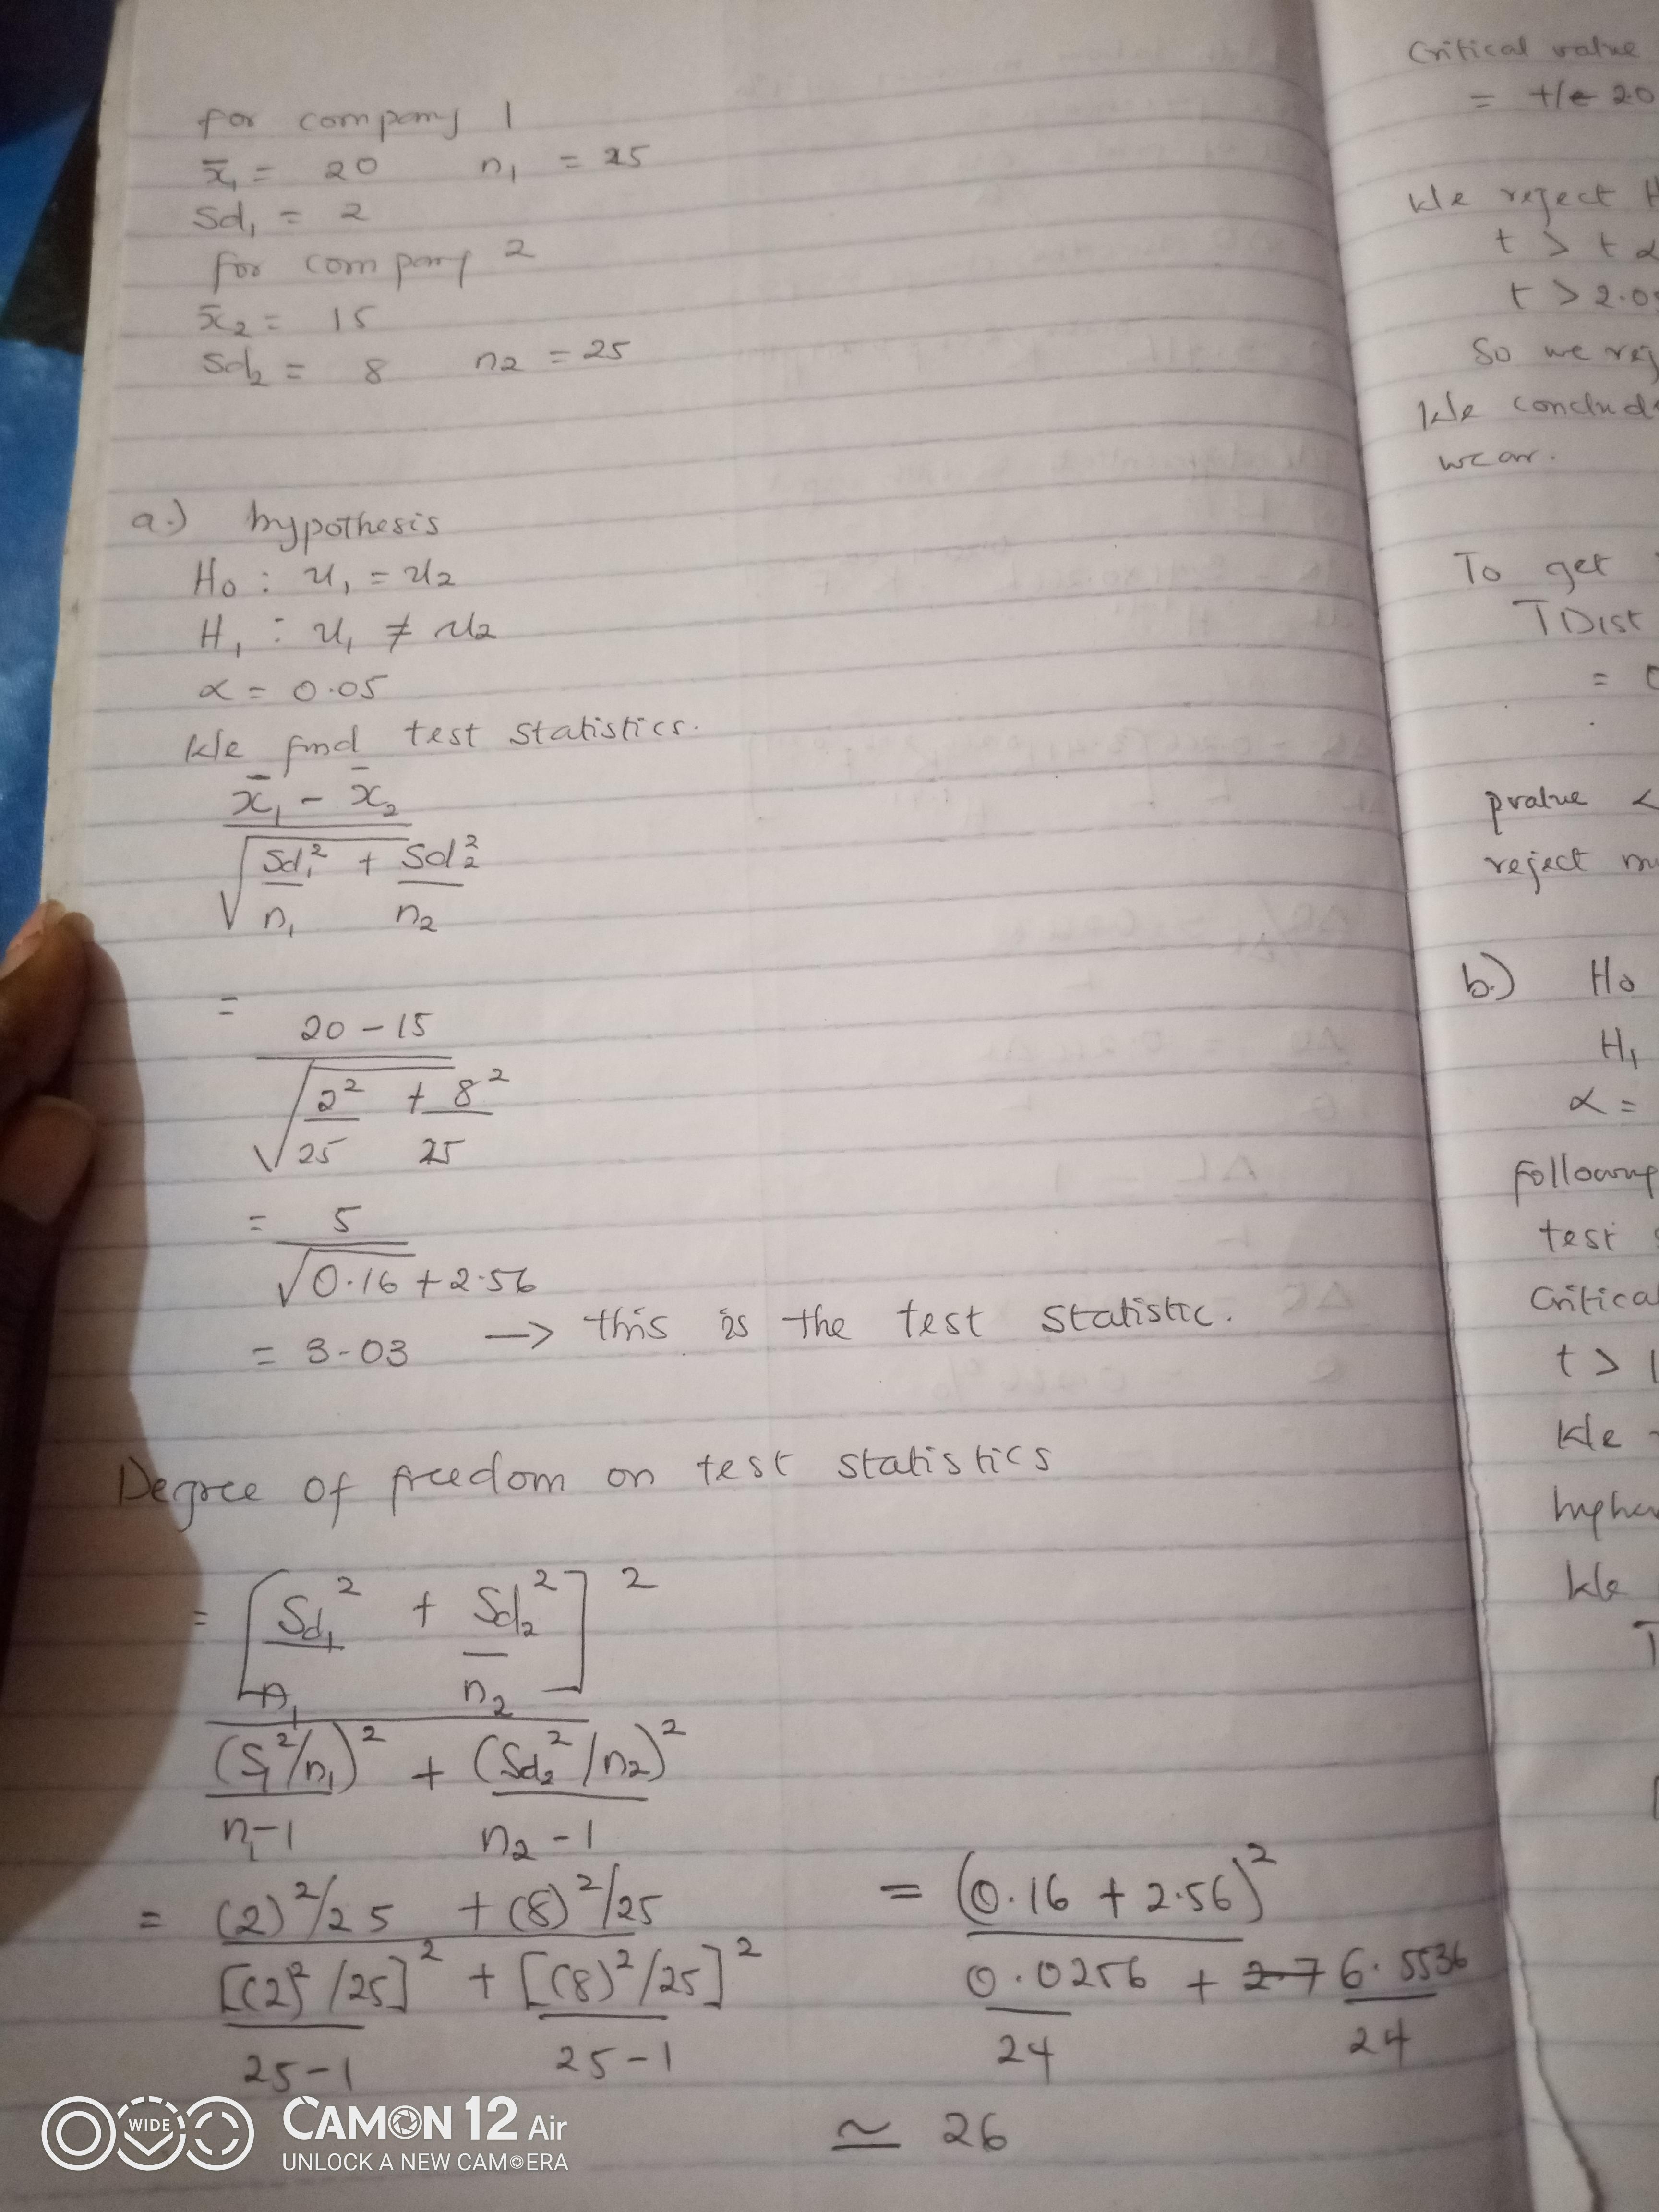 for company 1
x̄₁ = 20 n₁ = 25
Sd₁ = 2
for company 2
x̄₂ = 15
Sd₂ = 8 n₂ = 25
a.) hypothesis
H₀ : u₁ = u₂
H₁ : u₁ ≠ u₂
α = 0.05
We find test statistics.
x̄₁ - x̄₂
√ Sd₁² + Sd₂²
n₁ n₂
=
20 - 15
√ 2² + 8²
25 25
= 5
√0.16 + 2.56
= 3.03 → this is the test statistic.
Degree of freedom on test statistics
= [Sd₁² + Sd₂²]²
n₁ n₂
(S₁²/n₁)² + (Sd₂²/n₂)²
n₁-1 n₂-1
= (2)²/25 + (8)²/25
[(2)²/25]² + [(8)²/25]²
25-1 25-1
= (0.16 + 2.56)²
0.0256 + 6.5536
24 24
≃ 26
Critical value
= +/- 2.0
We reject H
t > t α
t > 2.0
So we rej
We conclud
wear.
To get
TDist
=
pvalue <
reject
b.) H₀
H₁
α =
following
test
Critical
t >
We
higher
We
CAMON 12 Air
WIDE
UNLOCK A NEW CAMERA